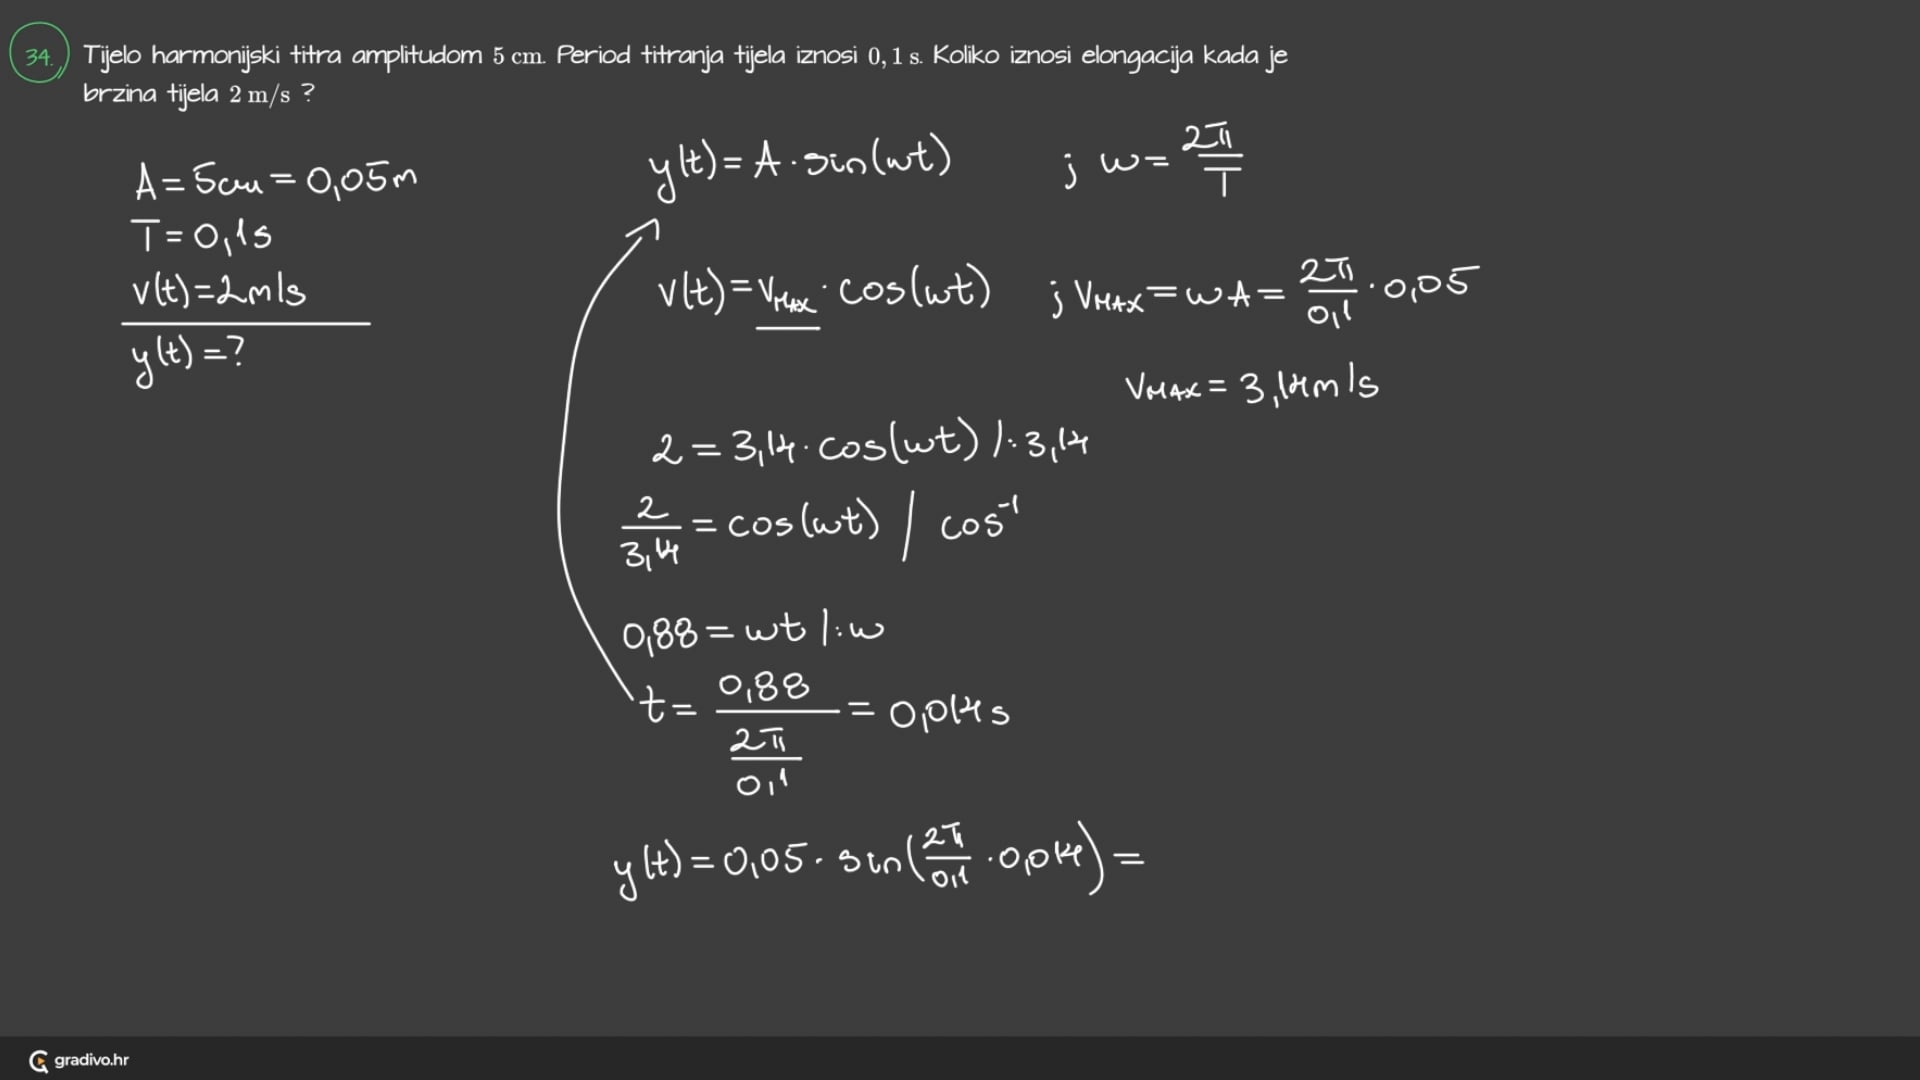 34. Tijelo harmonijski titra amplitudom 5 cm. Period titranja tijela iznosi 0, 1 s. Koliko iznosi elongacija kada je
brzina tijela 2 m/s ?
A = 5cm = 0,05m
T = 0,1s
v(t)=2m/s
y(t) =?
y(t) = A · sin(ωt) ; ω = 2π/T
v(t) = vMAX · cos(ωt) ; vMAX = ωA = 2π/0,1 · 0,05
vMAX = 3,14m/s
2 = 3,14 · cos(ωt) /: 3,14
2/3,14 = cos(ωt) / cos⁻¹
0,88 = ωt |: ω
t = 0,88/(2π/0,1) = 0,014s
y(t) = 0,05 · sin(2π/0,1 · 0,014) =
gradivo.hr